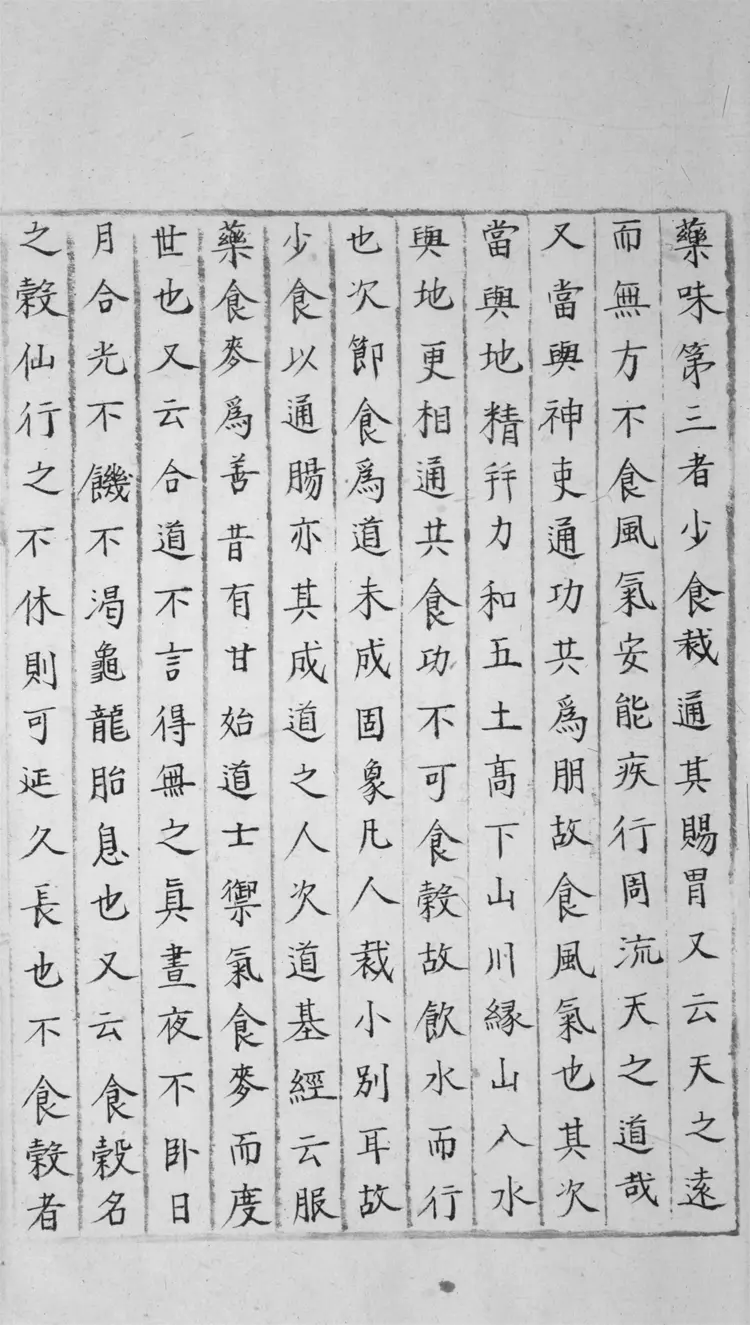 藥味第三者少食裁通其賜胃又云天之逺
而無方不食風氣安能疾行周流天之道哉
又當與神吏通功共爲朋故食風氣也其次
當與地精幷力和五土高下山川緣山入水
與地更相通共食功不可食穀故飲水而行
也次節食爲道未成固象凡人裁小别耳故
少食以通腸亦其成道之人次道基經云服
藥食麥爲善昔有甘始道士禦氣食麥而度
世也又云合道不言得無之眞晝夜不卧日
月合光不饑不渴龜龍胎息也又云食穀名
之穀仙行之不休則可延久長也不食穀者